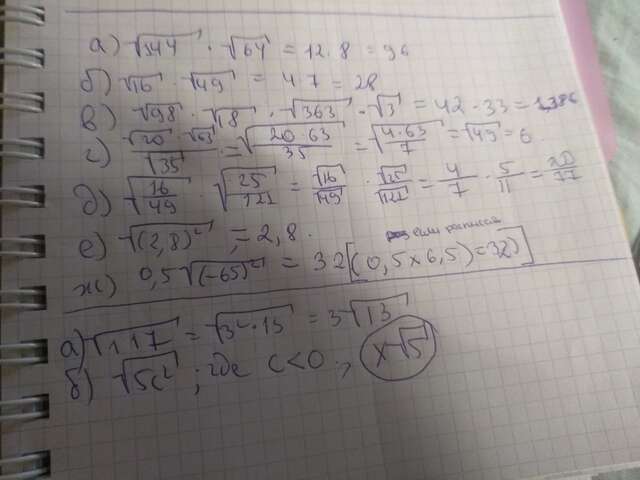 а) √144 · √64 = 12 · 8 = 96
б) √16 · √49 = 4 7 = 28
в) √98 · √18 · √363 · √3 = 42 · 33 = 1386
г) √20 · √63 / √35 = √(20 · 63 / 35) = √(4 · 63 / 7) = = 6
д) √(16/49) · √(25/121) = √16/√49 · √25/√121 = 4/7 · 5/11 = 20/77
е) √(2,8)² = 2,8.
если
ж) 0,5√(-65)² = 32 [(0,5 x 6,5) = 32)]
а) √117 = √3² · 13 = 3√13
б) √5c² ; где c < 0 , x√5